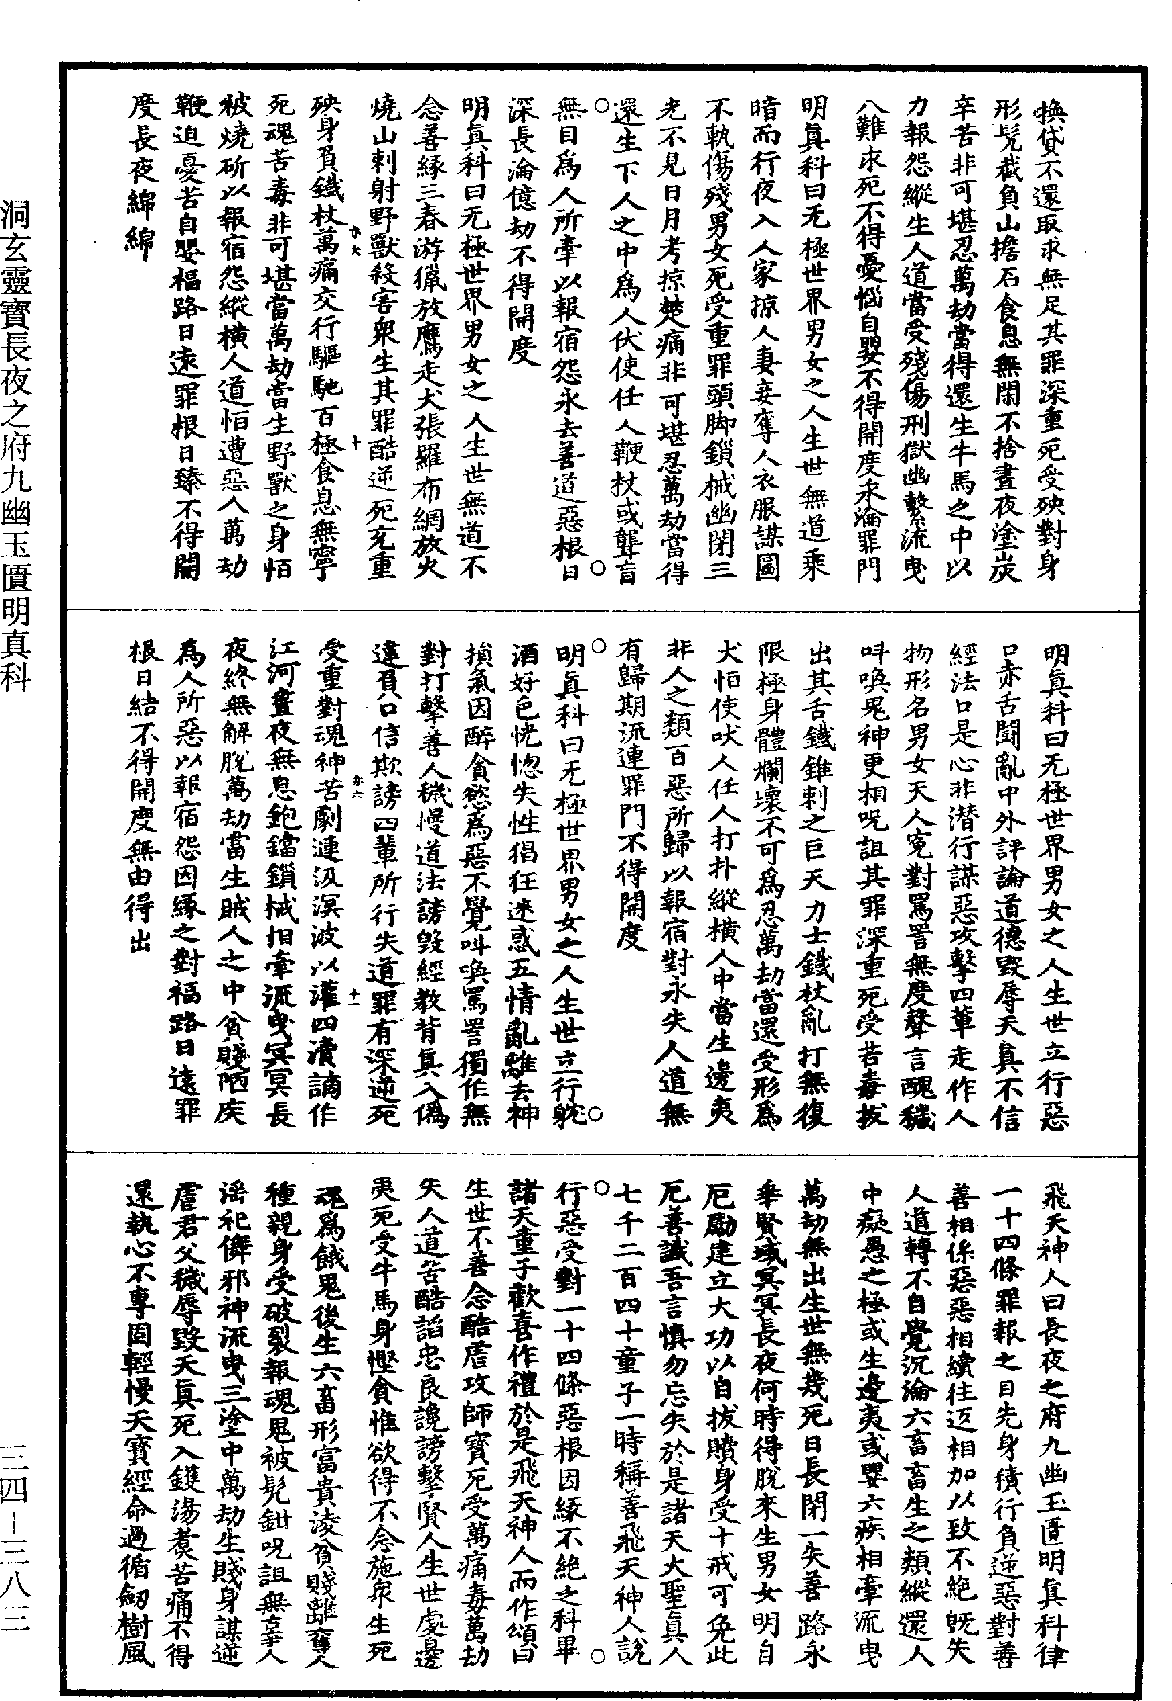 換貸不還取求無足其罪深重死受殃對身
形髡截負山擔石食息無閑不捨晝夜塗炭
辛苦非可堪忍萬劫當得還生牛馬之中以
力報怨縱生人道當受殘傷刑獄幽繫流曳
八難求死不得憂惱自嬰不得開度永淪罪門
明真科曰无極世界男女之人生世無道乘
暗而行夜入人家掠人妻妾奪人衣服謀圖
不軌傷殘男女死受重罪頭脚鎖械幽閉三
光不見日月考掠楚痛非可堪忍萬劫當得
還生下人之中為人伏使任人鞭杖或聾盲
無目為人所牽以報宿怨永去善道惡根日
深長淪億劫不得開度
明真科曰无極世界男女之人生世無道不
念善緣三春游獵放鷹走犬張羅布網放火
燒山刺射野獸殺害衆生其罪酷逆死充重
殃身負鐵杖萬痛交行驅馳百極食息無寧
死魂苦毒非可堪當萬劫當生野獸之身恒
被燒斫以報宿怨縱橫人道恒遭惡人萬劫
鞭迫憂苦自嬰福路日遠罪根日臻不得開
度長夜綿綿
明真科曰无極世界男女之人生世立行惡
口赤舌鬪亂中外評論道德毀辱天真不信
經法口是心非潜行謀惡攻擊四輩走作人
物形名男女天人寃對罵詈無度聲言醜穢
呌喚鬼神更相呪詛其罪深重死受苦毒拔
出其舌鐵錐刺之巨天力士鐵杖亂打無復
限極身體爛壞不可為忍萬劫當還受形為
犬恒使吠人任人打扑縱橫人中當生邊夷
非人之類百惡所歸以報宿對永失人道無
有歸期流連罪門不得開度
明真科曰无極世界男女之人生世立行躭
酒好色恍惚失性猖狂迷惑五情亂離去神
損氣因醉貪慾為惡不覺呌喚罵詈獨作無
對打擊善人穢慢道法謗毀經教背真入偽
違負口信欺謗四輩所行失道罪有深逆死
受重對魂神苦劇連汲溟波以灌四瀆謫作
江河晝夜無息鉋鐺鎖械相牽流曳冥冥長
夜終無解脫萬劫當生賊人之中貧賤陋疾
為人所惡以報宿怨因緣之對福路日遠罪
根日結不得開度無由得出
飛天神人曰長夜之府九幽玉匱明真科律
一十四條罪報之目先身積行負逆惡對善
善相係惡惡相續往返相加以致不絕旣失
人道轉不自覺沉淪六畜畜生之類縱還人
中癡愚之極或生邊夷或嬰六疾相牽流曳
萬劫無出生世無幾死日長閉一失善路永
乖賢域冥冥長夜何時得脫來生男女明自
厄勵建立大功以自拔贖身受十戒可免此
厄善識吾言慎勿忘失於是諸天大聖真人
七千二百四十童子一時稱善飛天神人說
行惡受對一十四條惡根因緣不絕之科畢
諸天童子歡喜作禮於是飛天神人而作頌曰
生世不善念酷虐攻師寶死受萬痛毒萬劫
失人道苦酷謟忠良讒謗擊賢人生世處邊
夷死受牛馬身慳貪惟欲得不念施衆生死
魂為餓鬼後生六畜形富貴淩貧賤離奪人
種親身受破裂報魂鬼被髡鉗呪詛無辜人
淫祀儛邪神流曳三塗中萬劫生賤身謀逆
虐君父穢辱毀天真死入鑊湯煑苦痛不得
還執心不專固輕慢天寶經命過循劒樹風
亦六
十
亦六
十一
洞玄靈寶長夜之府九幽玉匱明真科
三四－三八三